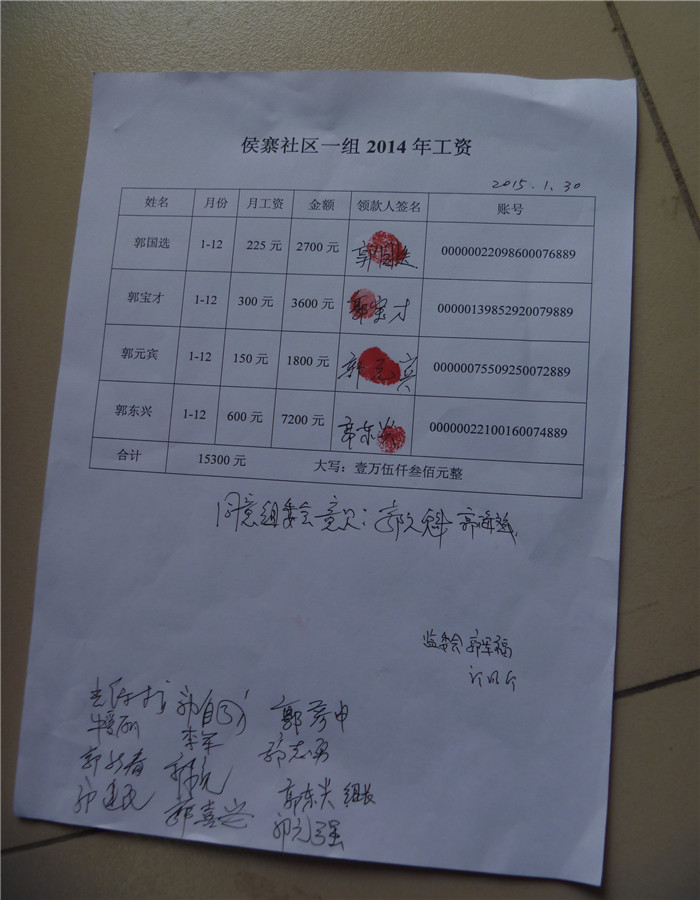 侯寨社区一组 2014 年工资
2015.1.30
姓名 月份 月工资 金额 领款人签名 账号
郭国选 1-12 225 元 2700 元 郭国选 00000022098600076889
郭宝才 1-12 300 元 3600 元 郭宝才 00000139852920079889
郭元宾 1-12 150 元 1800 元 郭元宾 00000075509250072889
郭东兴 1-12 600 元 7200 元 郭东兴 00000022100160074889
合计 15300 元 大写：壹万伍仟叁佰元整
同意组委会意见：郭 郭海
监委会 郭军福
郭秀申
李军 郭志勇
郭新春
郭东兴 组长
郭建民 郭喜兴 郭元强